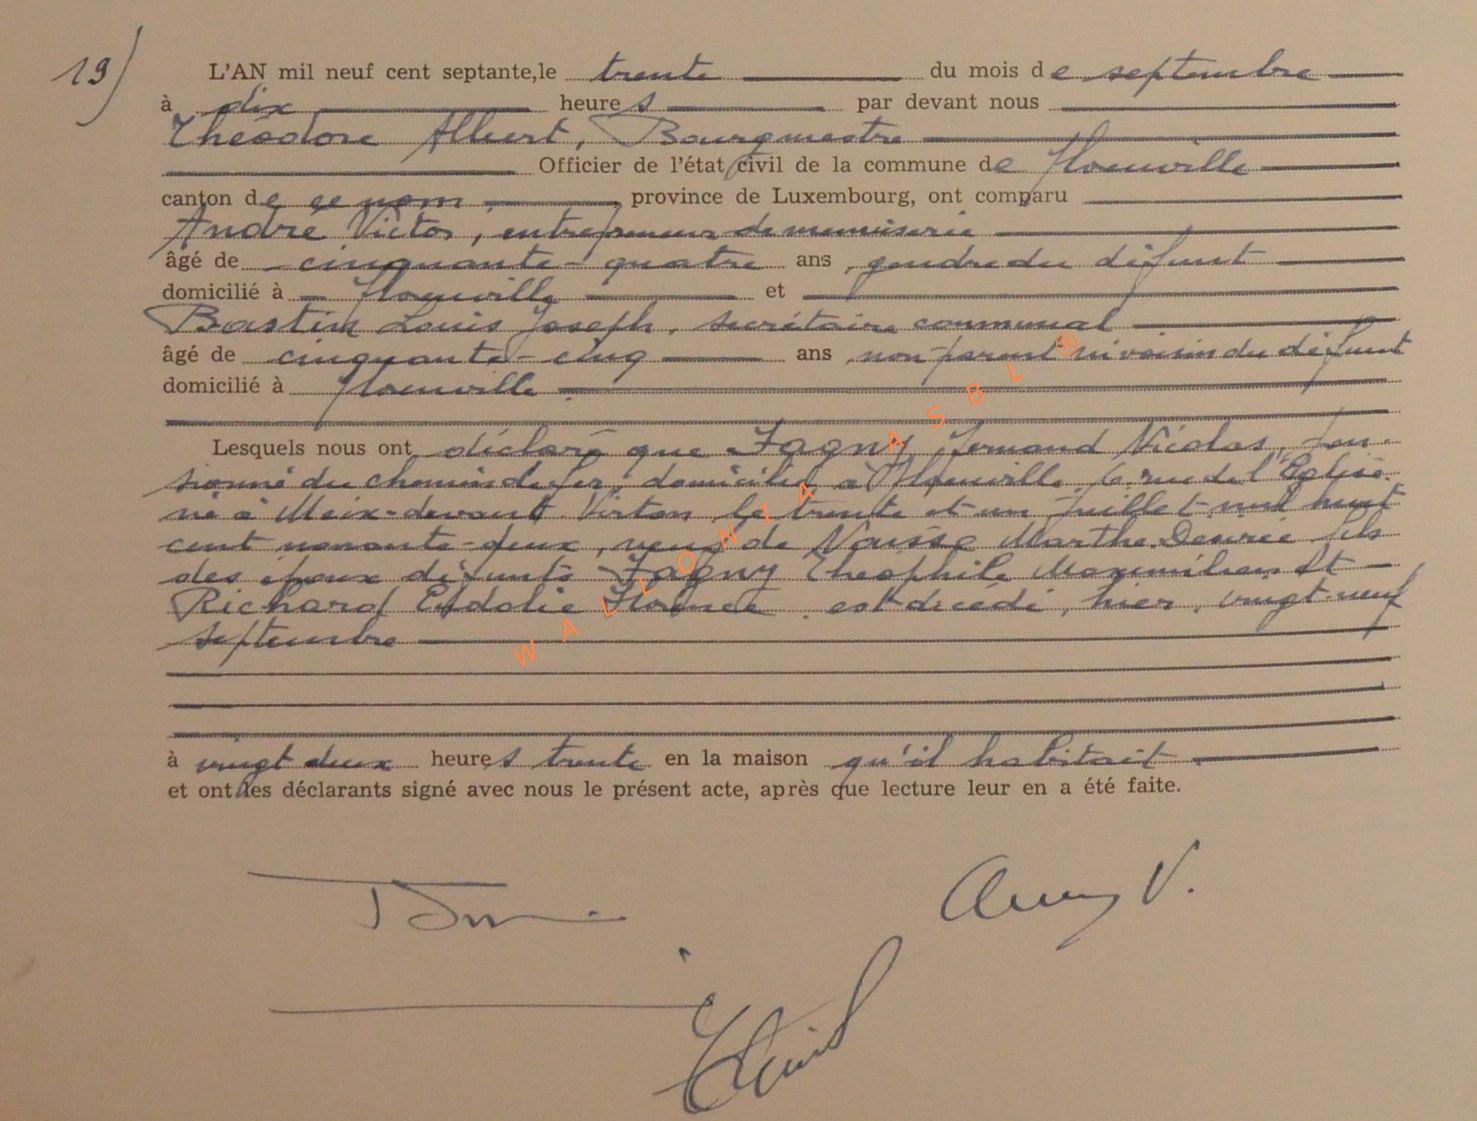 19)
L'AN mil neuf cent septante,le trente du mois de septembre
à dix heures par devant nous
Théodore Albert, Bourgmestre
Officier de l'état civil de la commune de Florenville
canton de ce nom, province de Luxembourg, ont comparu
André Victor, entrepreneur de menuiserie
âgé de cinquante-quatre ans, gendre du défunt
domicilié à Florenville et
Bastin Louis Joseph, secrétaire communal
âgé de cinquante-cinq ans, non parent ni voisin du défunt
domicilié à Florenville.
Lesquels nous ont déclaré que Fagny Fernand Nicolas, pen-
sionné du chemin de fer, domicilié à Florenville, 6, rue de l'Eglise
né à Meix-devant-Virton, le trente et un juillet mil huit
cent nonante-deux, veuf de Marthe Desirée fils
des époux défunts Fagny Théophile Maximilien et
Richard Eudolie Florence, est décédé, hier, vingt-neuf
septembre
à vingt deux heures trente en la maison qu'il habitait.
et ont les déclarants signé avec nous le présent acte, après que lecture leur en a été faite.
WALLONIA ASBL ®